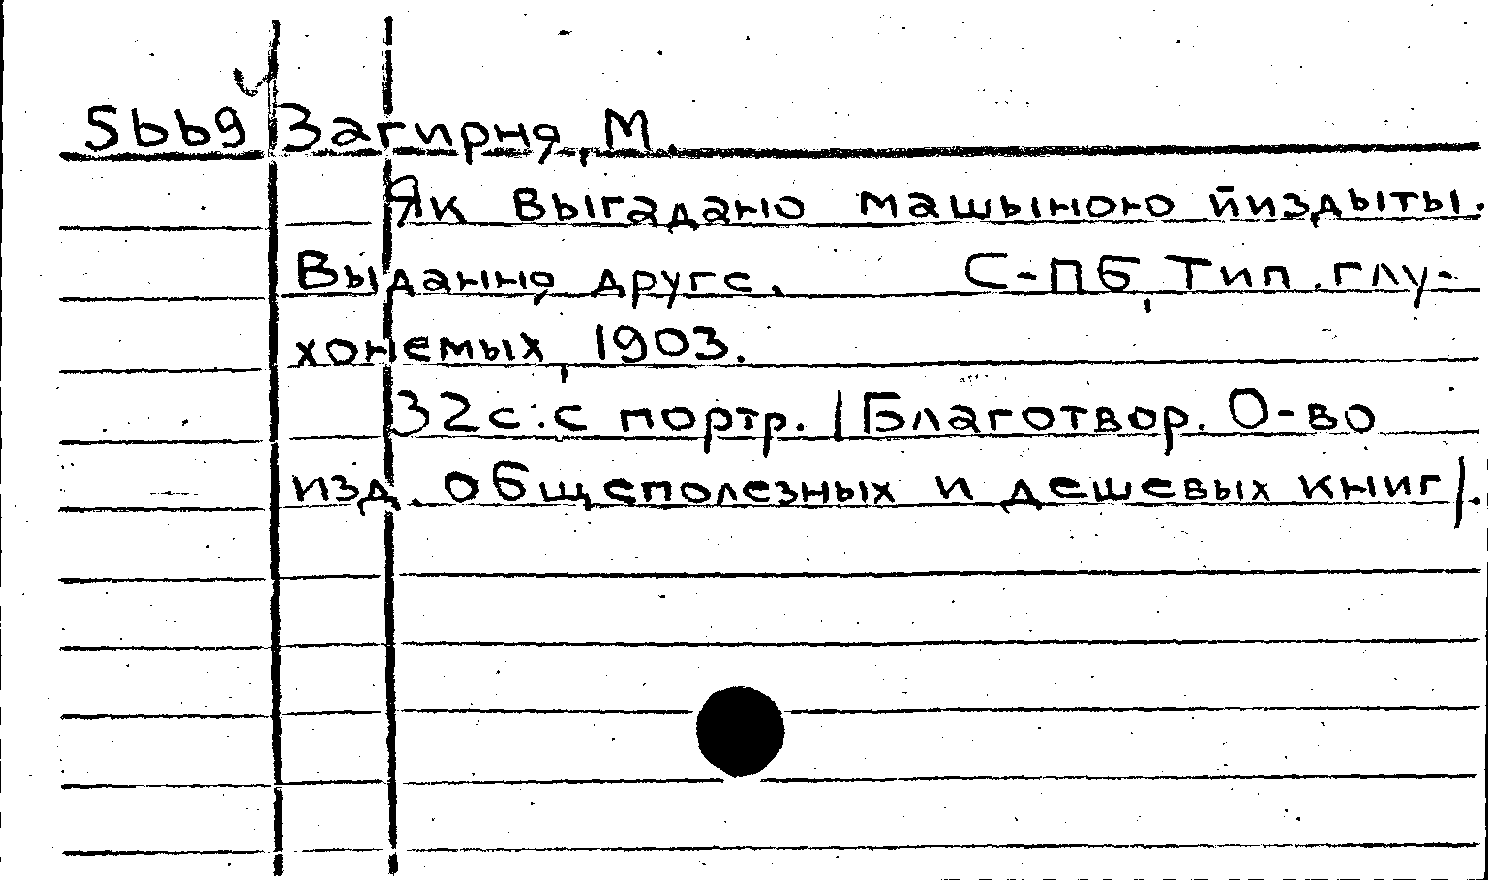 5669 Загирня, М.
Як выгадано машыною йиздыты.
Выдання друге. С-Пб, Тип. глу-
хонемых, 1903.
32 с. : с портр. /Благотвор. О-во
изд. общеполезных и дешевых книг/.